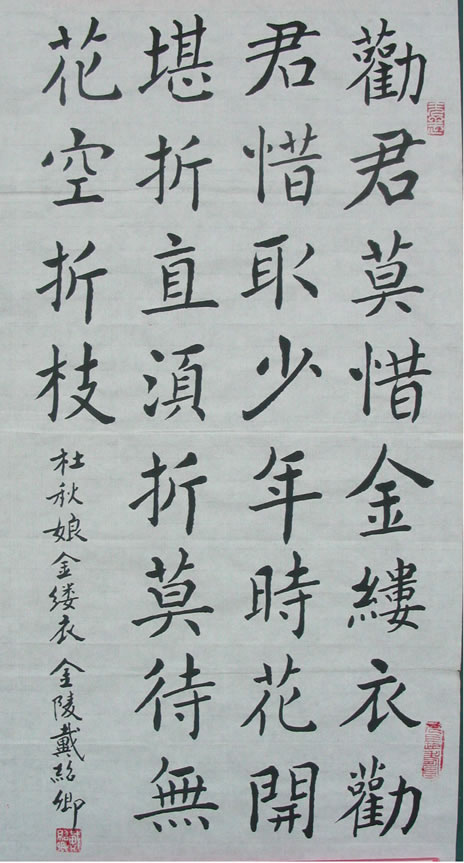 勸君莫惜金縷衣勸
君惜取少年時花開
堪折直須折莫待無
花空折枝
杜秋娘金缕衣 金陵戴紹卿